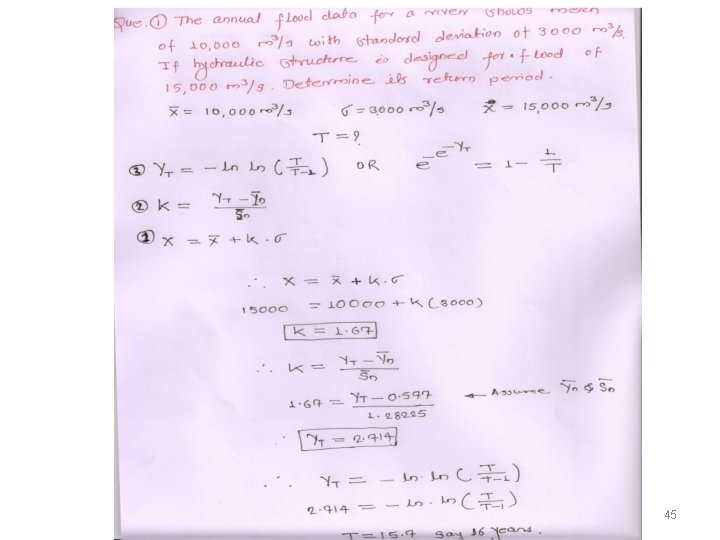 Que. ① The annual flood data for a river shows mean
of 10,000 m³/s with standard deviation of 3000 m³/s.
If hydraulic structure is designed for a flood of
15,000 m³/s. Determine its return period.
x̄ = 10,000 m³/s σ = 3000 m³/s x = 15,000 m³/s
T = ?
③ Y_T = - ln ln (T/T-1) OR e^-e^-Y_T = 1 - 1/T
② K = Y_T - ȳn / S̄n
① x = x̄ + K . σ
∴ x = x̄ + K . σ
15000 = 10000 + K (3000)
K = 1.67
∴ K = Y_T - ȳn / S̄n
1.67 = Y_T - 0.577 / 1.28225 ← Assume ȳn & S̄n
∴ Y_T = 2.714
∴ Y_T = - ln . ln (T/T-1)
2.714 = - ln . ln (T/T-1)
T = 15.7 say 16 years.
45